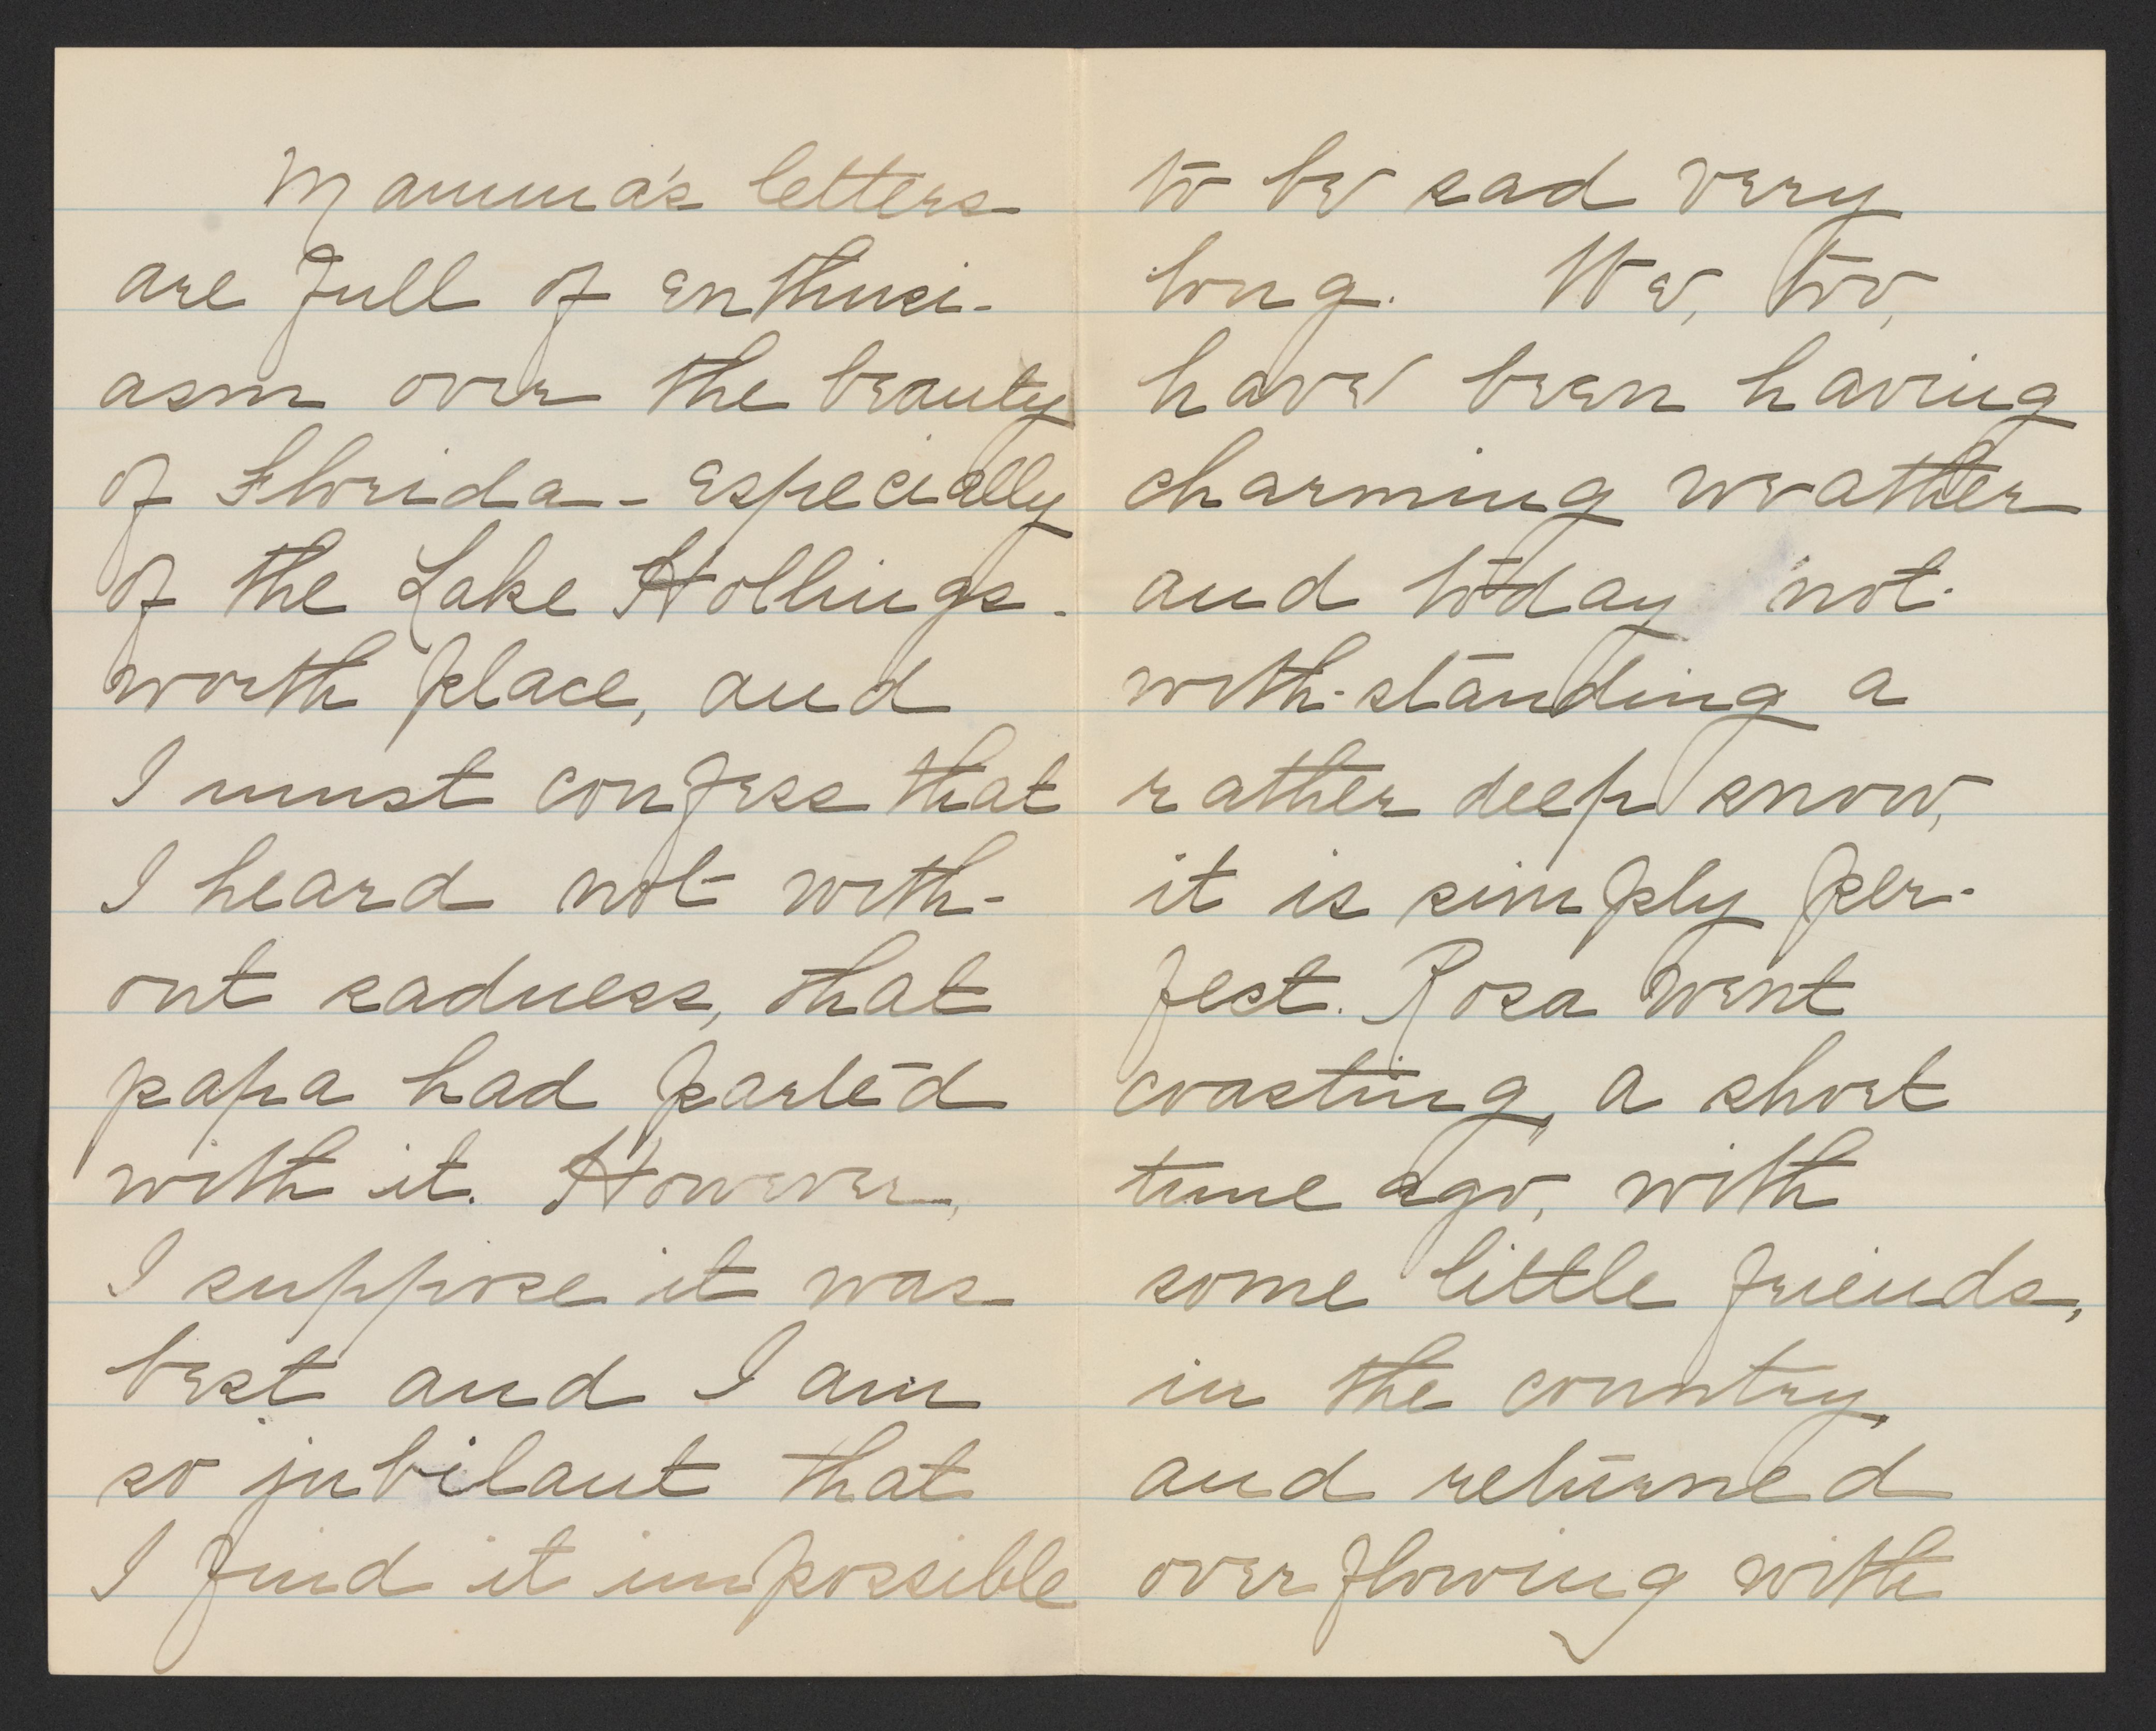 Mamma's letters
are full of enthusi-
asm over the beauty
of Florida - especially
of the Lake Hollings-
worth place, and
I must confess that
I heard not with-
out sadness, that
papa had parted
with it. However,
I suppose it was
best and I am
so jubilant that
I find it impossible
to be sad very
long. We, too,
have been having
charming weather
and today not-
with-standing a
rather deep snow,
it is simply per-
fect. Rosa went
coasting, a short
time ago, with
some little friends,
in the country,
and returned
overflowing with